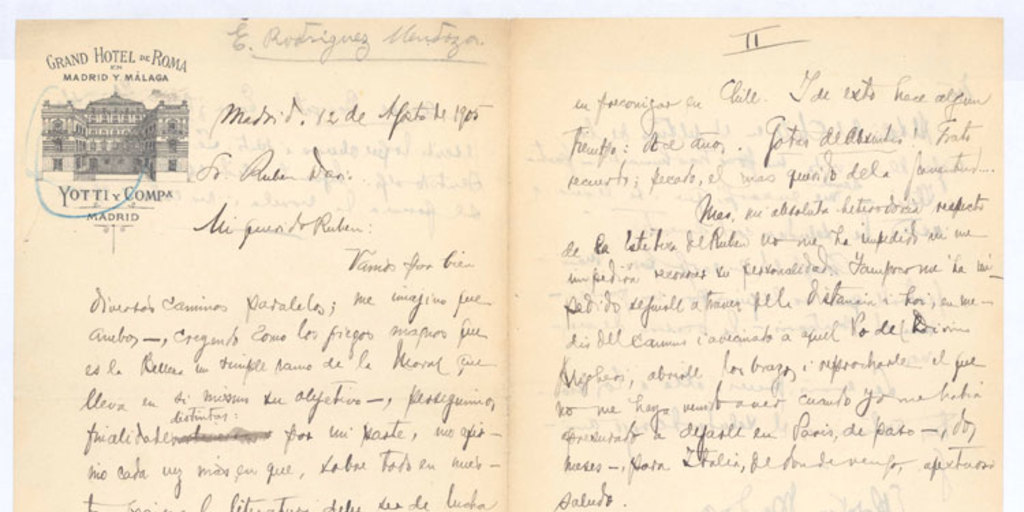 E. Rodríguez Mendoza.
GRAND HOTEL DE ROMA
EN
MADRID Y MÁLAGA
YOTTI Y COMPª
MADRID
Madrid. 12 de Agosto de 1905
Sr Ruben Dario.
Mi querido Ruben:
Vamos por bien
diversos caminos paralelos; me imagino que
ambos —, creyendo como los griegos magnos que
es la Belleza un simple ramo de la Moral, que
lleva en si mismo su objetivo —, perseguimos
distintas:
finalidades por mi parte, me
mo cada vez mas en que, sobre todo en nues-
literatura debe ser de lucha
II
en preconizar en Chile. I de esto hace algun
tiempo: doce años. Gotas de Absintio! Grato
recuerdo; pecado, el mas querido de la juventud...
Mas, mi absoluta heterodoxia respecto
de la Estetica del Ruben no me ha impedido ni me
impedirá reconocer su personalidad. Tampoco me ha im-
pedido seguirle a traves de la distancia i hoi, en me-
dio del camino i avecinado a aquel Yo del Divino
Alighieri, abrirle los brazos i reprocharle el que
no me haya venido a ver cuando yo me habia
apresurado a dejarle en Paris, de paso —, dos
meses —, para Italia, de donde vengo, afectuoso
saludo.